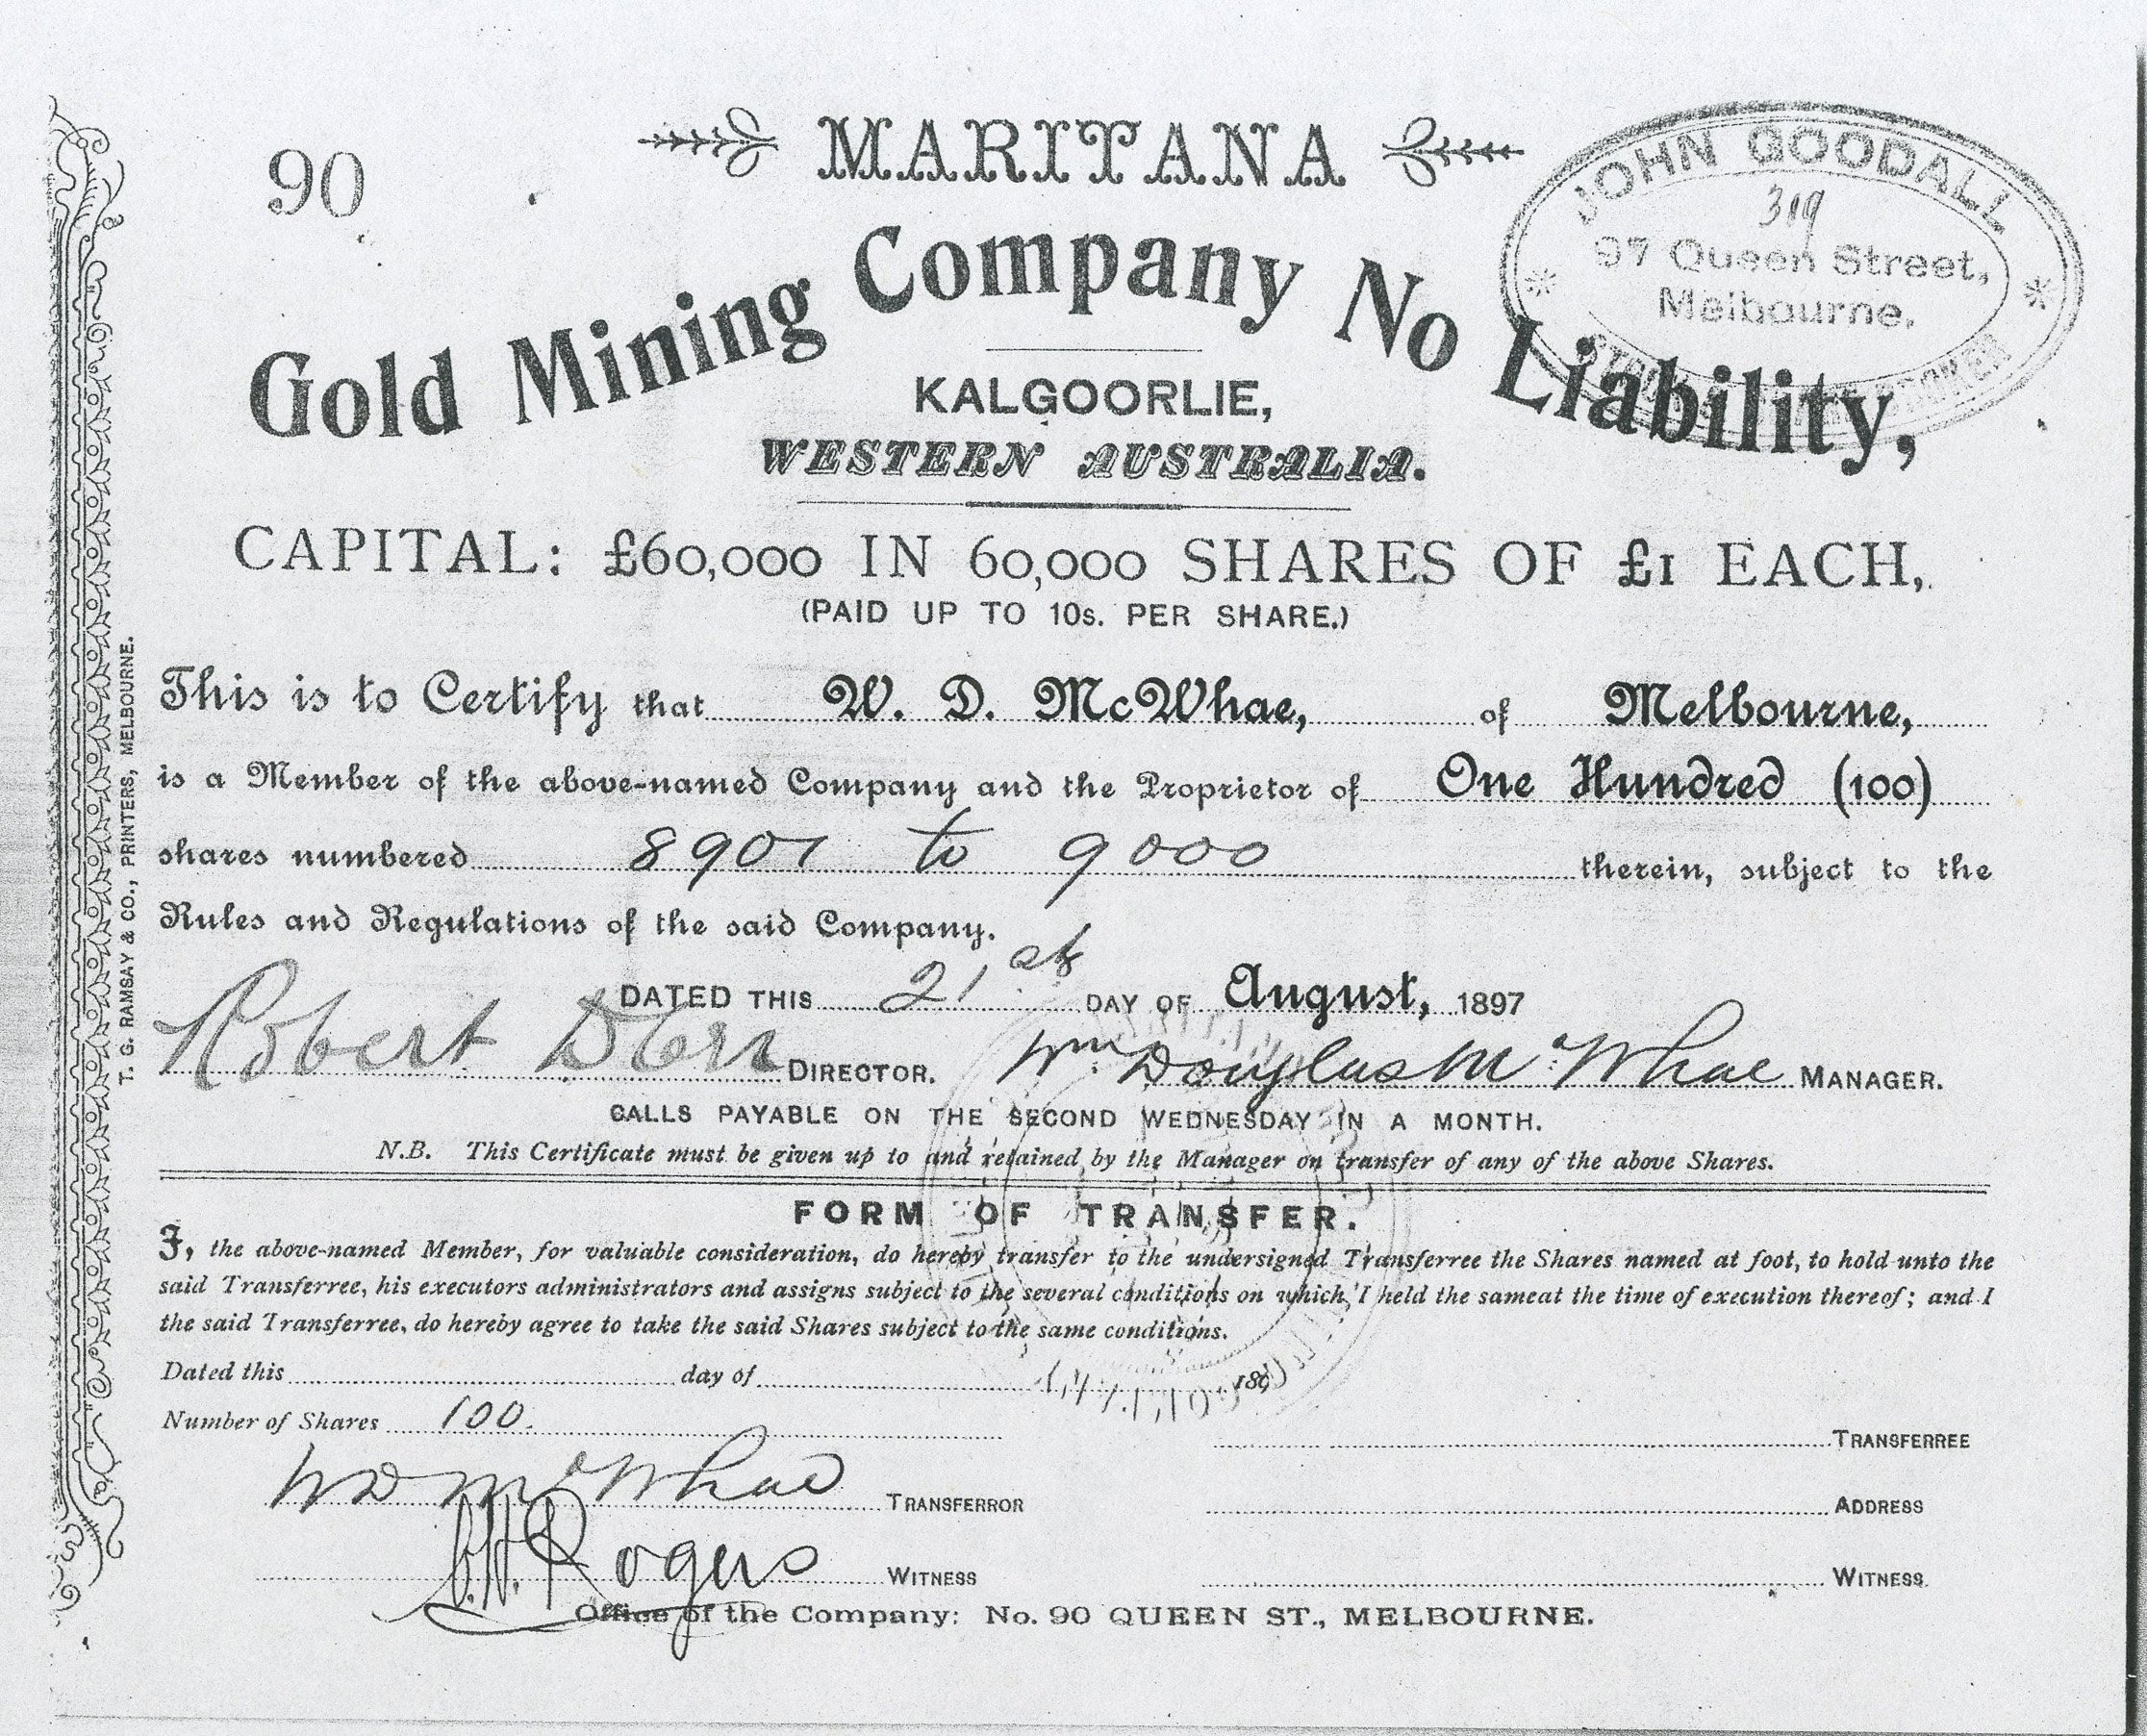 90
MARITANA
Gold Mining Company No Liability,
KALGOORLIE,
WESTERN AUSTRALIA.
JOHN GOODALL
319
97 Queen Street,
Melbourne.
CAPITAL: £60,000 IN 60,000 SHARES OF £1 EACH,
(PAID UP TO 10s. PER SHARE.)
This is to Certify that W. D. McWhae, of Melbourne,
is a Member of the above-named Company and the Proprietor of One Hundred (100)
shares numbered 8901 to 9000 therein, subject to the
Rules and Regulations of the said Company.
DATED THIS 21st DAY OF August, 1897
Robert DIRECTOR. Wm. Douglas McWhae MANAGER.
CALLS PAYABLE ON THE SECOND WEDNESDAY IN A MONTH.
N.B. This Certificate must be given up to and retained by the Manager on transfer of any of the above Shares.
FORM OF TRANSFER.
I, the above-named Member, for valuable consideration, do hereby transfer to the undersigned Transferree the Shares named at foot, to hold unto the
said Transferree, his executors administrators and assigns subject to the several conditions on which I held the sameat the time of execution thereof; and I
the said Transferree, do hereby agree to take the said Shares subject to the same conditions.
Dated this day of 189
Number of Shares 100.
TRANSFERREE
W D McWhae TRANSFERROR
ADDRESS
Rogers WITNESS
WITNESS
Office of the Company: No. 90 QUEEN ST., MELBOURNE.
T. G. RAMSAY & CO., PRINTERS, MELBOURNE.